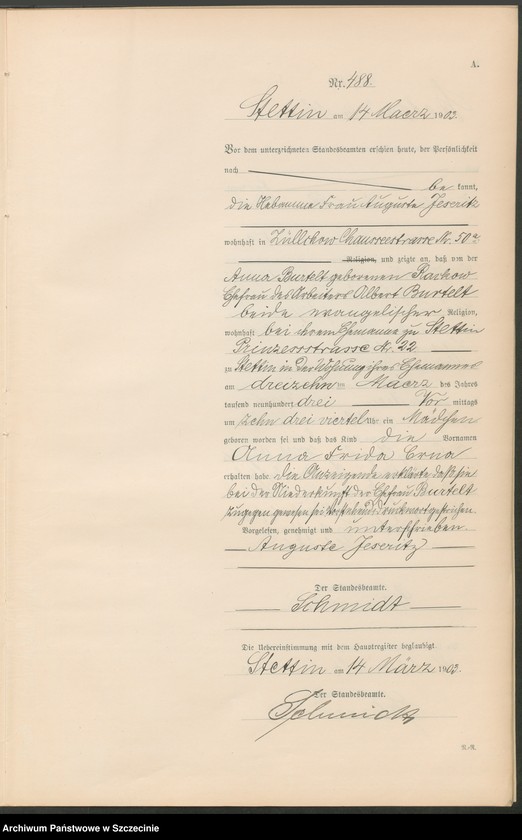 A.
Nr. 488.
Stettin am 14 Maerz 1903.
Vor dem unterzeichneten Standesbeamten erschien heute, der Persönlichkeit
nach be kannt,
die Hebamme Frau Auguste Jeseritz
wohnhaft in Züllchow Chausseestrasse Nr. 50a
Religion, und zeigte an, daß von der
Anna Burtelt geborenen
Ehefrau des Arbeiters Albert Burtelt
beide evangelischer Religion,
wohnhaft bei ihrem Ehemanne zu Stettin
Prinzessstrasse Nr. 22
zu Stettin in der Wohnung ihres Ehemannes
am dreizehnten Maerz des Jahres
tausend neunhundert drei Vor mittags
um zehn drei viertel Uhr ein Mädchen
geboren worden sei und daß das Kind die Vornamen
Anna Frida Erna
erhalten habe. die Anzeigende erklärte daß sie
bei der Niederkunft der Ehefrau Burtelt
zugegen gewesen sei Vorstehend Druckwort gestrichen.
Vorgelesen, genehmigt und unterschrieben.
Auguste Jeseritz
Der Standesbeamte.
Schmidt
Die Uebereinstimmung mit dem Hauptregister beglaubigt
Stettin am 14 März 1903.
Der Standesbeamte.
Schmidt
Archiwum Państwowe w Szczecinie